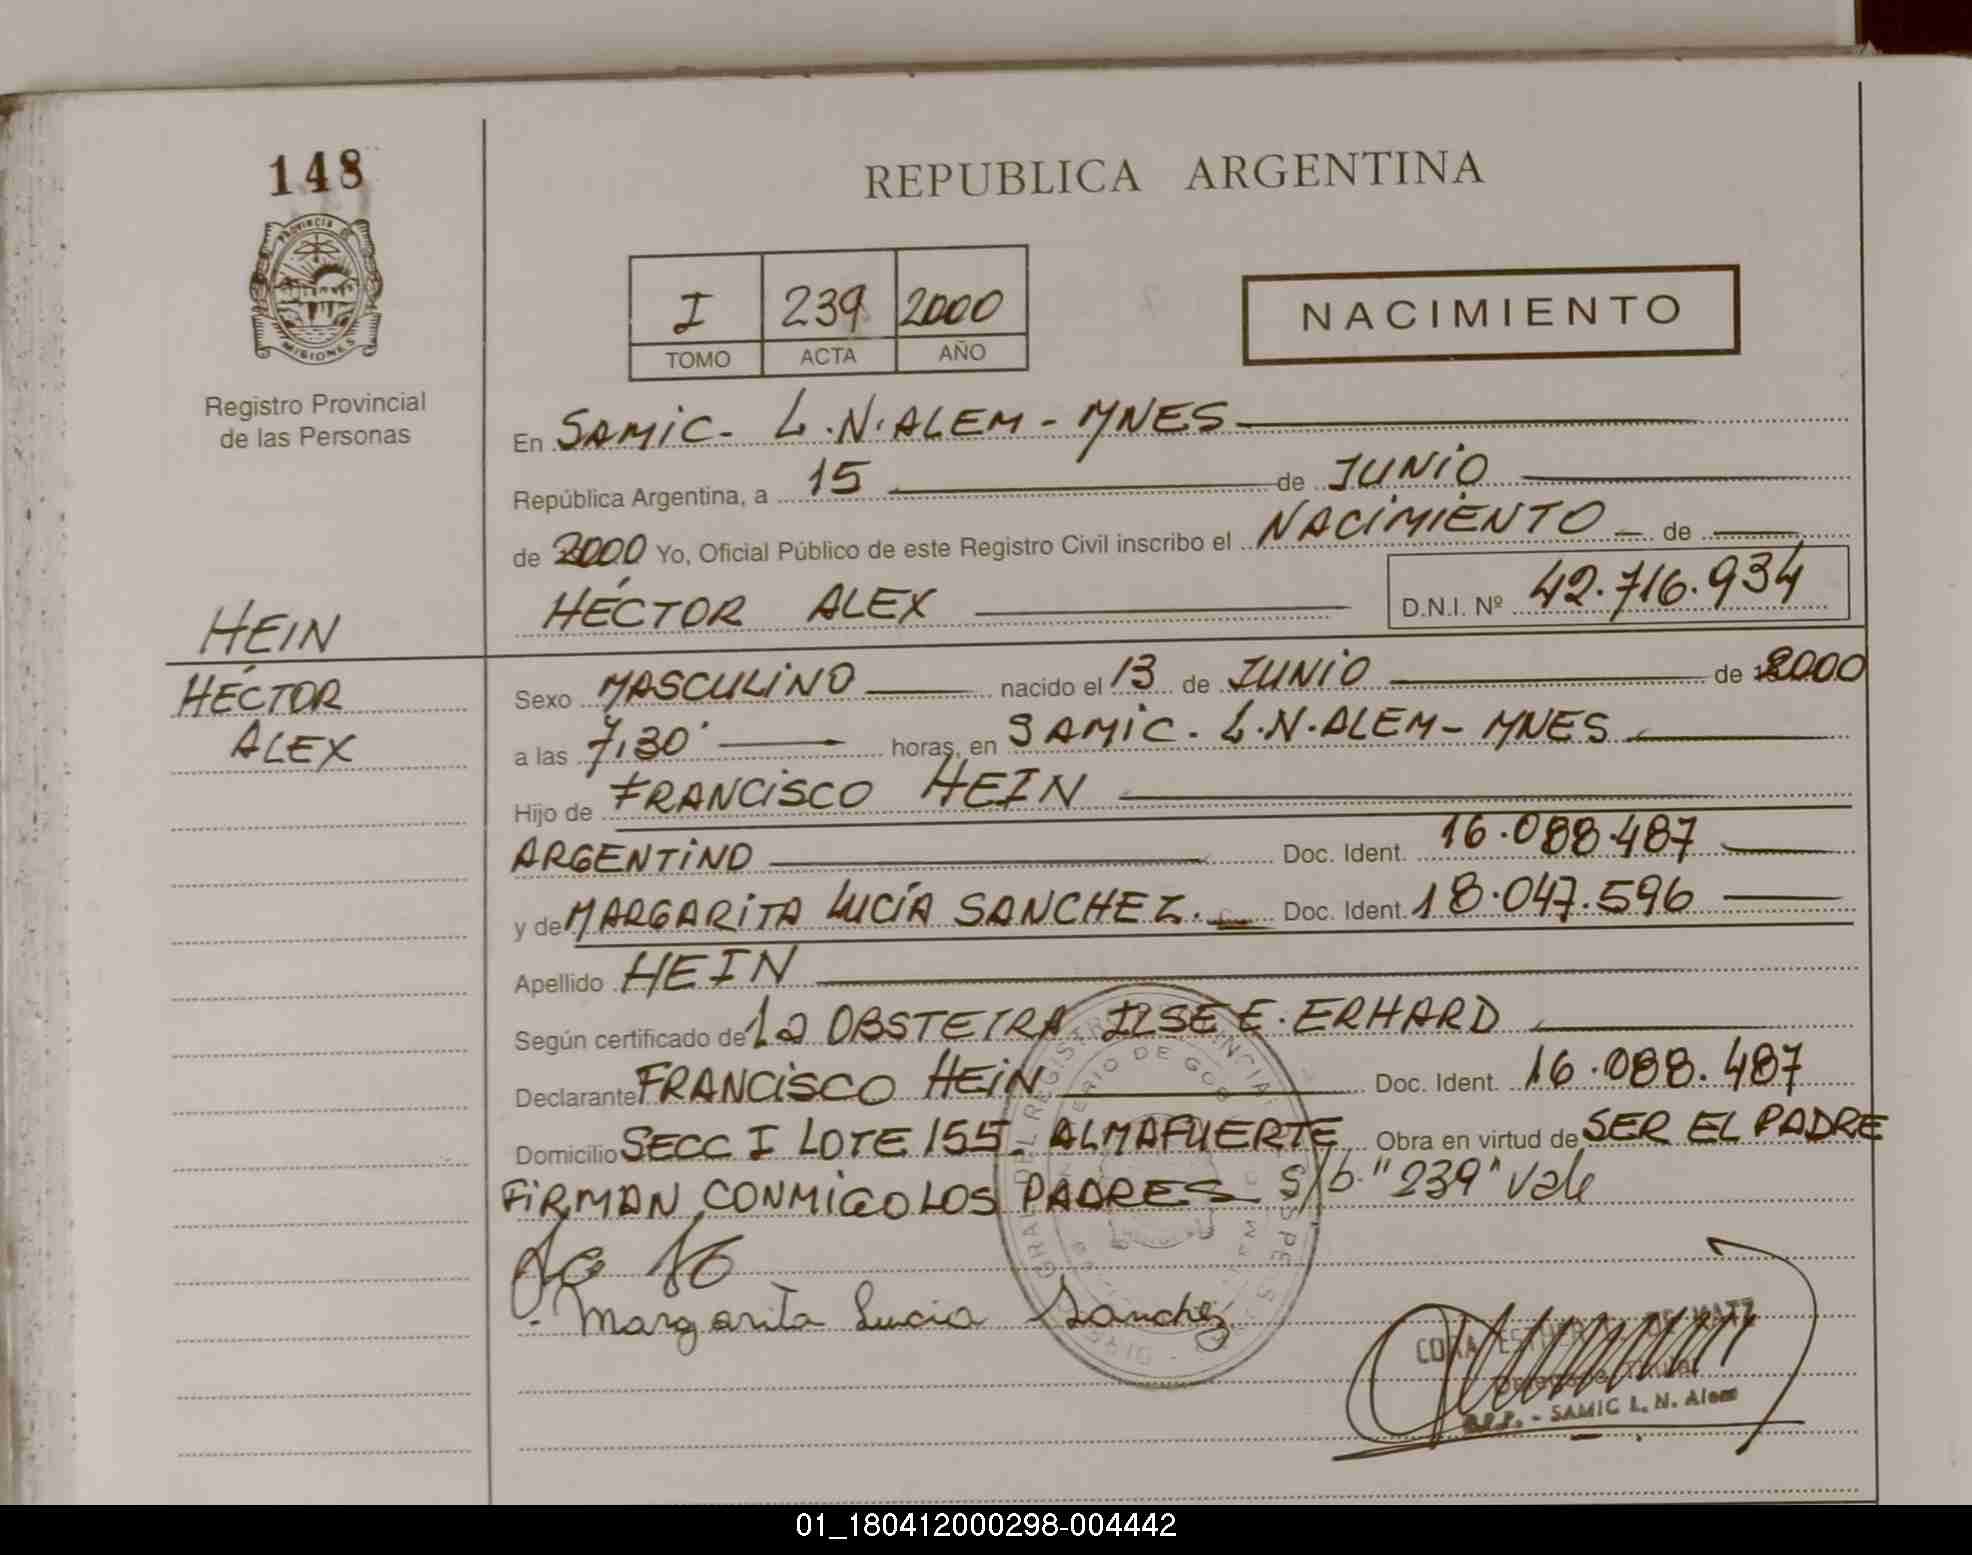 148
REPUBLICA ARGENTINA
PROVINCIA DE
MISIONES
Registro Provincial
de las Personas
I 239 2000
TOMO ACTA AÑO
NACIMIENTO
En SAMIC. L.N.ALEM - MNES
República Argentina, a 15 de JUNIO
de 2000 Yo, Oficial Público de este Registro Civil inscribo el NACIMIENTO de
HÉCTOR ALEX D.N.I. Nº 42.716.934
HEIN
HÉCTOR
ALEX
Sexo MASCULINO nacido el 13 de JUNIO de 2000
a las 7,30' horas, en SAMIC. L.N.ALEM - MNES
Hijo de FRANCISCO HEIN
ARGENTINO Doc. Ident. 16.088.487
y de MARGARITA LUCÍA SANCHEZ. Doc. Ident. 18.047.596
Apellido HEIN
Según certificado de La OBSTETRA ILSE E. ERHARD
Declarante FRANCISCO HEIN Doc. Ident. 16.088.487
Domicilio SECC I LOTE 155. ALMAFUERTE Obra en virtud de SER EL PADRE
FIRMAN CONMIGO LOS PADRES S/b. "239" Vale
Margarita Lucia Sanchez
SAMIC L. N. Alem
01_180412000298-004442